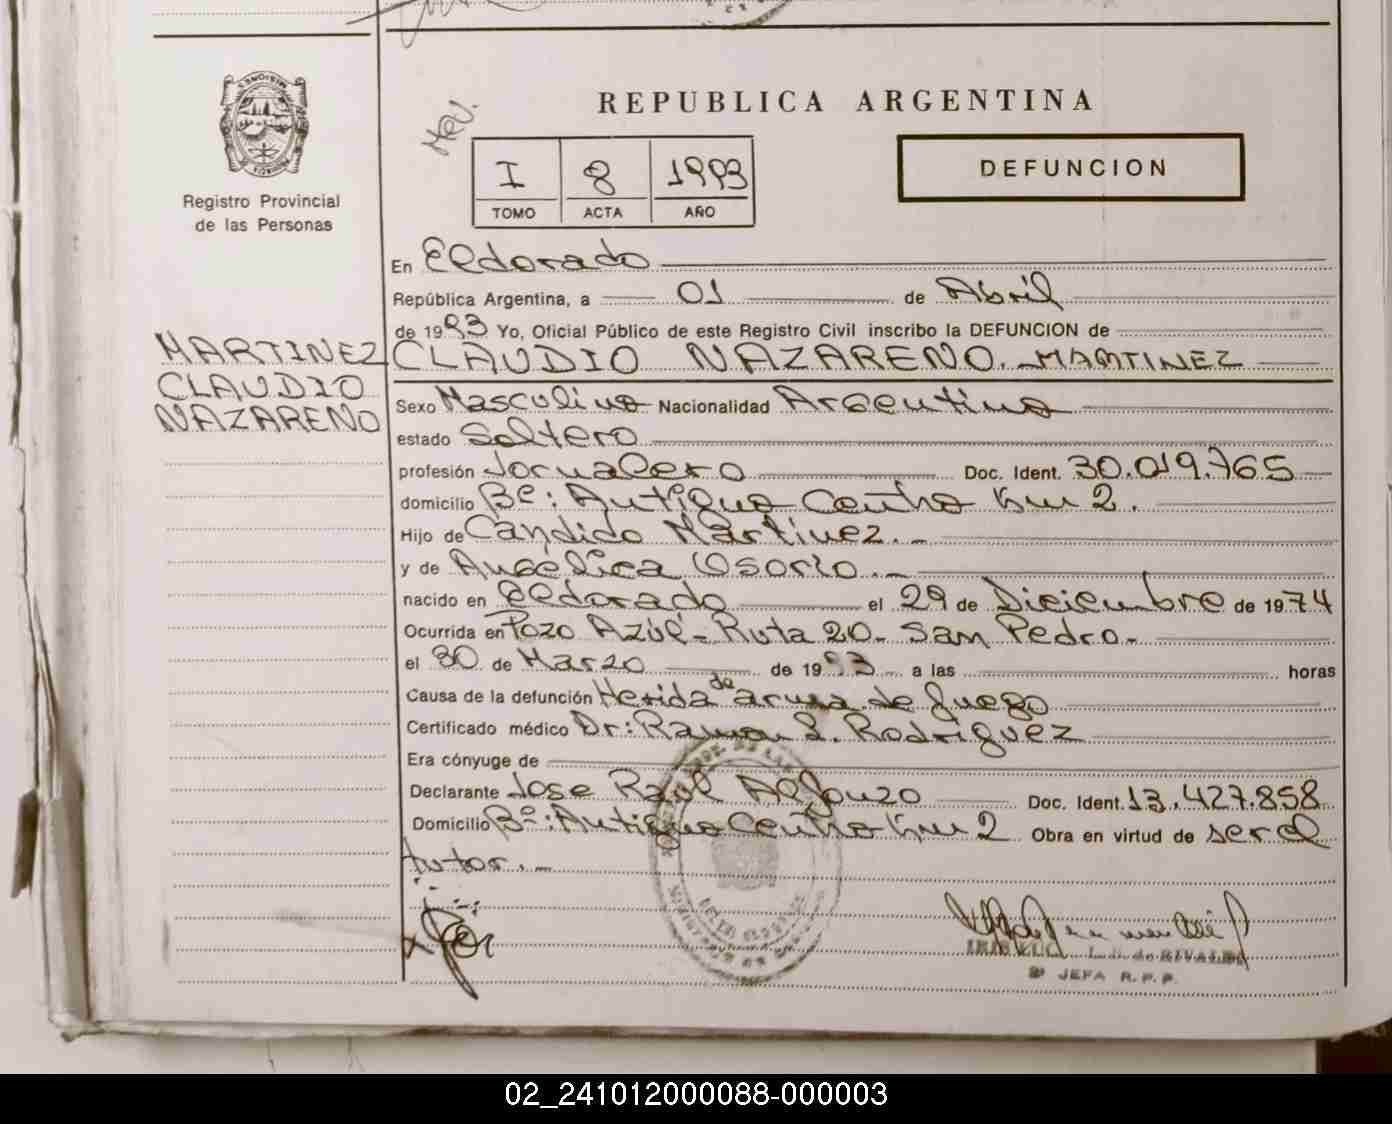 REPUBLICA ARGENTINA
MISIONES
Registro Provincial
de las Personas
I 8 1993
TOMO ACTA AÑO
DEFUNCION
En Eldorado
República Argentina, a 01 de Abril
de 1993 Yo, Oficial Público de este Registro Civil inscribo la DEFUNCION de
MARTINEZ
CLAUDIO
NAZARENO
CLAUDIO NAZARENO. MARTINEZ
Sexo Masculino Nacionalidad Argentino
estado Soltero
profesión Jornalero Doc. Ident. 30.019.765
domicilio Bº: Antiguo Centro Km 2.
Hijo de Candido Martinez.
y de Angelica Osorio.
nacido en Eldorado el 29 de Diciembre de 1974
Ocurrida en Pozo Azúl - Ruta 20 - San Pedro -
el 30 de Marzo de 1993 a las horas
Causa de la defunción Herida de arma de fuego
Certificado médico Dr: Ramon S. Rodriguez
Era cónyuge de
Declarante Jose Raúl Alfonzo Doc. Ident. 13.427.858
Domicilio Bº: Antiguo Centro Km 2 Obra en virtud de ser el
tutor.
2º JEFA R. P. P.
02_241012000088-000003